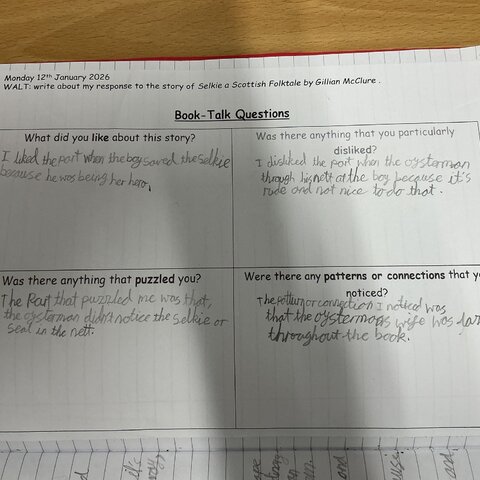 Monday 12th January 2026
WALT: write about my response to the story of Selkie a Scottish Folktale by Gillian McClure .
Book-Talk Questions
What did you like about this story?
I liked the part when the boy saved the selkie
because he was being her hero.
Was there anything that you particularly
disliked?
I disliked the part when the oysterman
through his nett at the boy because it's
rude and not nice to do that.
Was there anything that puzzled you?
The Part that puzzled me was that,
the oysterman didn't notice the selkie or
seal in the nett.
Were there any patterns or connections that you
noticed?
The pattern or connection I noticed was
that the oystermans wife was
throughout the book.
it's
and
and